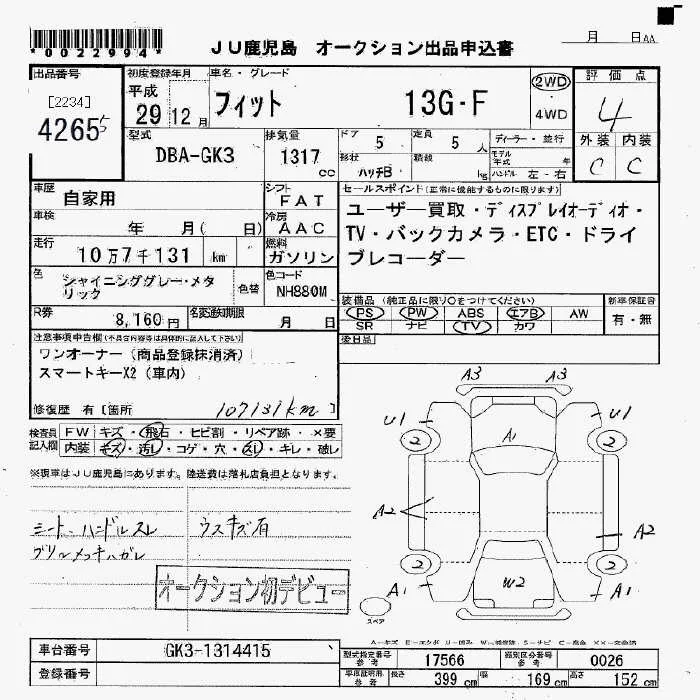 *0022994*
JU鹿児島 オークション出品申込書
月 日AA
出品番号
[2234]
4265
初度登録年月
平成
29年 12月
車名・グレード
フィット 13G・F
2WD
4WD
評価点
4
外装 内装
C C
型式
DBA-GK3
排気量
1317cc
ドア 5
定員 5人
形状 ハッチB
積載 kg
ディーラー・並行
モデル年式 年
ハンドル 左・右
車歴
自家用
シフト
FAT
車検
年 月( 日)
冷房
AAC
走行
10万7千131 km
燃料
ガソリン
色
シャイニンググレー・メタリック
色替
色コード
NH880M
R券
8,160円
名変通知期限
月 日
セールスポイント(正常に機能するものに限ります)
ユーザー買取・ディスプレイオーディオ・
TV・バックカメラ・ETC・ドライ
ブレコーダー
装備品(純正品に限り○をつけてください)
PS PW ABS エアB AW
SR ナビ TV カワ
新車保証書
有・無
後日品
注意事項申告欄(不具合内容等は具体的に記入して下さい)
ワンオーナー(商品登録抹消済)
スマートキーX2(車内)
修復歴 有[箇所 107131km ]
検査員記入欄
FW キズ・飛石・ヒビ割・リペア跡・×要
内装 キズ・汚レ・コゲ・穴・スレ・キレ・破レ
※現車はJU鹿児島にあります。陸送費は落札店負担となります。
シート、ハンドルスレ
グリルメッキハガレ
ウスキズ有
オークション初デビュー
A3 A3
U1 U1
2 2
A1
A2 A2
2 2
A1 W2 A1
スペア
車台番号
GK3-1314415
登録番号
型式指定番号 参考
17566
類別区分番号 参考
0026
車庫証明用 参考
長さ 399 cm
幅 169 cm
高さ 152 cm